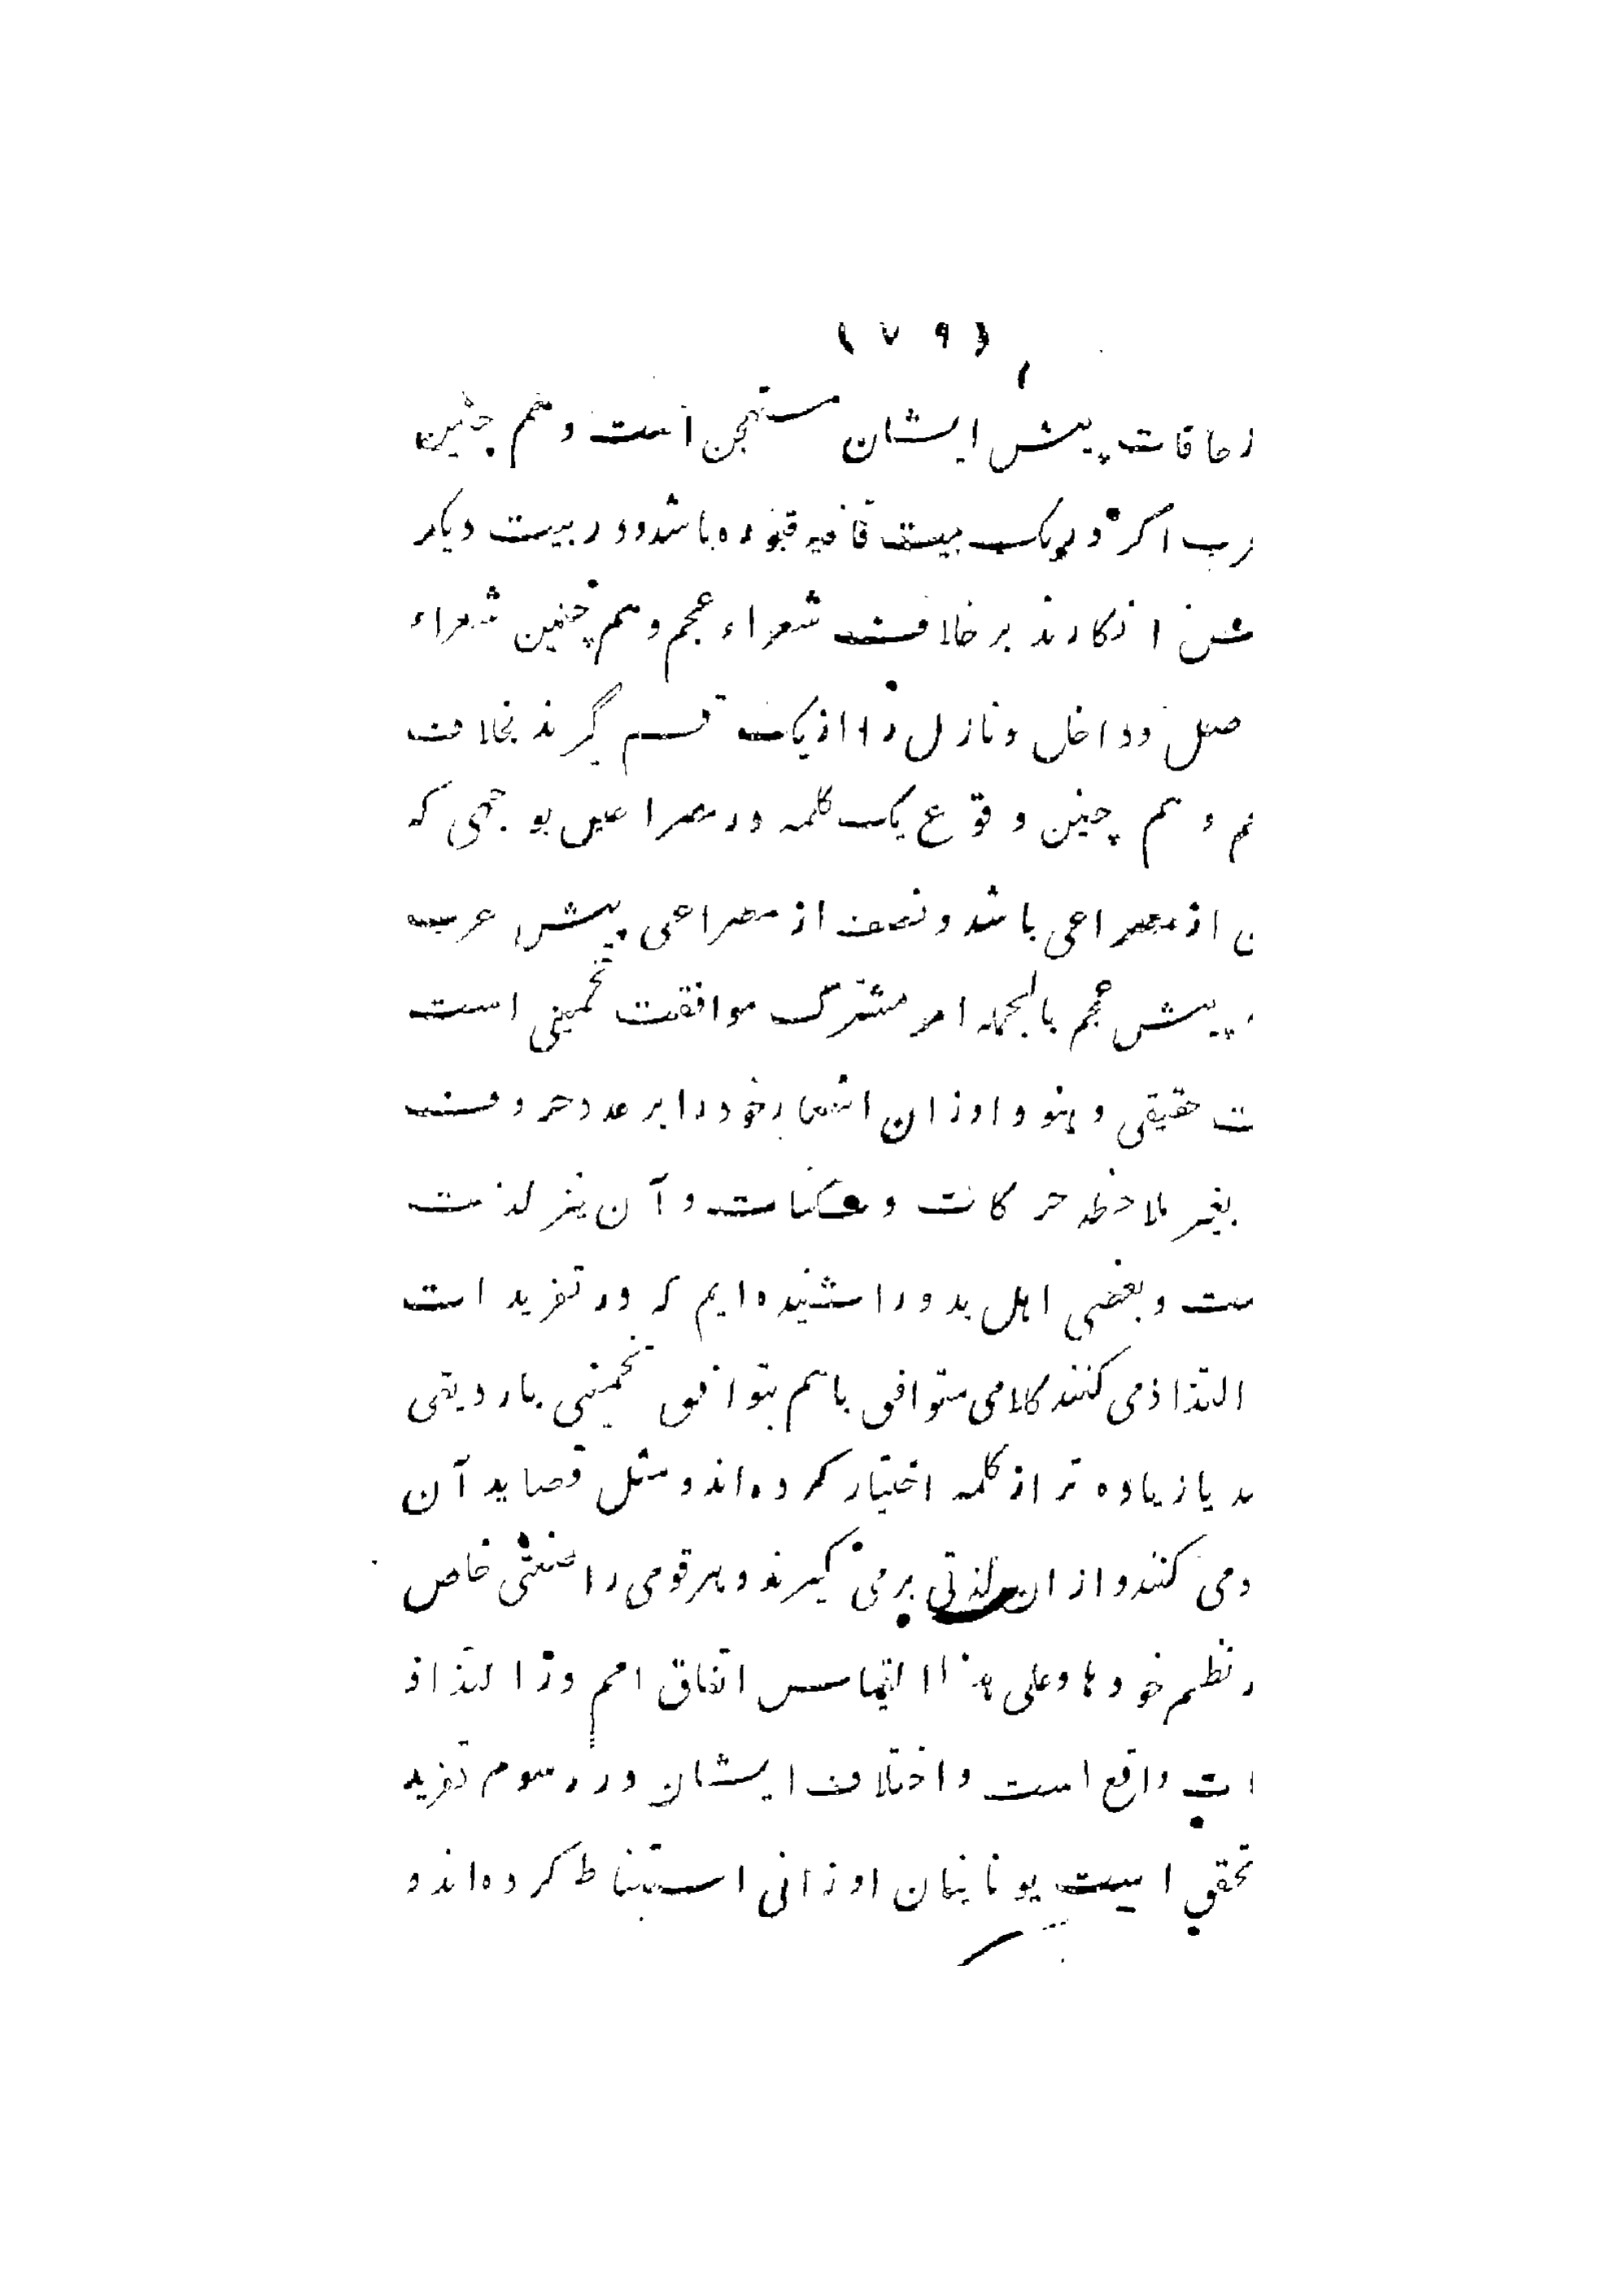 (٧٩)
زحافات پیش ایشان مستهجن است و هم چنین
رب اگر در یک بیت قافیه قبوره باشد و در بیت دیگر
انگارند برخلاف شعراء عجم و هم چنین شعراء
صل و داخل و نازل را از یک قسم گیرند بخلاف
م و هم چنین وقوع یک کلمه در مصراعین بوجهی که
ن از مصراعی باشد و نصف از مصراعی پیش عرب
پیش عجم بالجمله امر مشترک موافقت تخمینی است
ت حقیقی و هنود اوزان اشعار خود را بر عدد حروف
بغیر ملاحظه حرکات و سکنات و آن نیز لذت
ست و بعضی اهل بدو را شنیده ایم که در تغرید است
التذاذ می کنند کلامی متوافق باهم بتوافق تخمینی بار دیفی
ید یا زیاده تر از کلمه اختیار کرده اند و مثل قصاید آن
ومی کنند و از ان لذتی بر می گیرند و هر قومی را صنعتی خاص
ر نظم خودها و علی هذا القیاس اتفاق امم در التذاذ
ات واقع است و اختلاف ایشان در رسوم تغرید
تحقق است یونانیان اوزانی استنباط کرده اند و